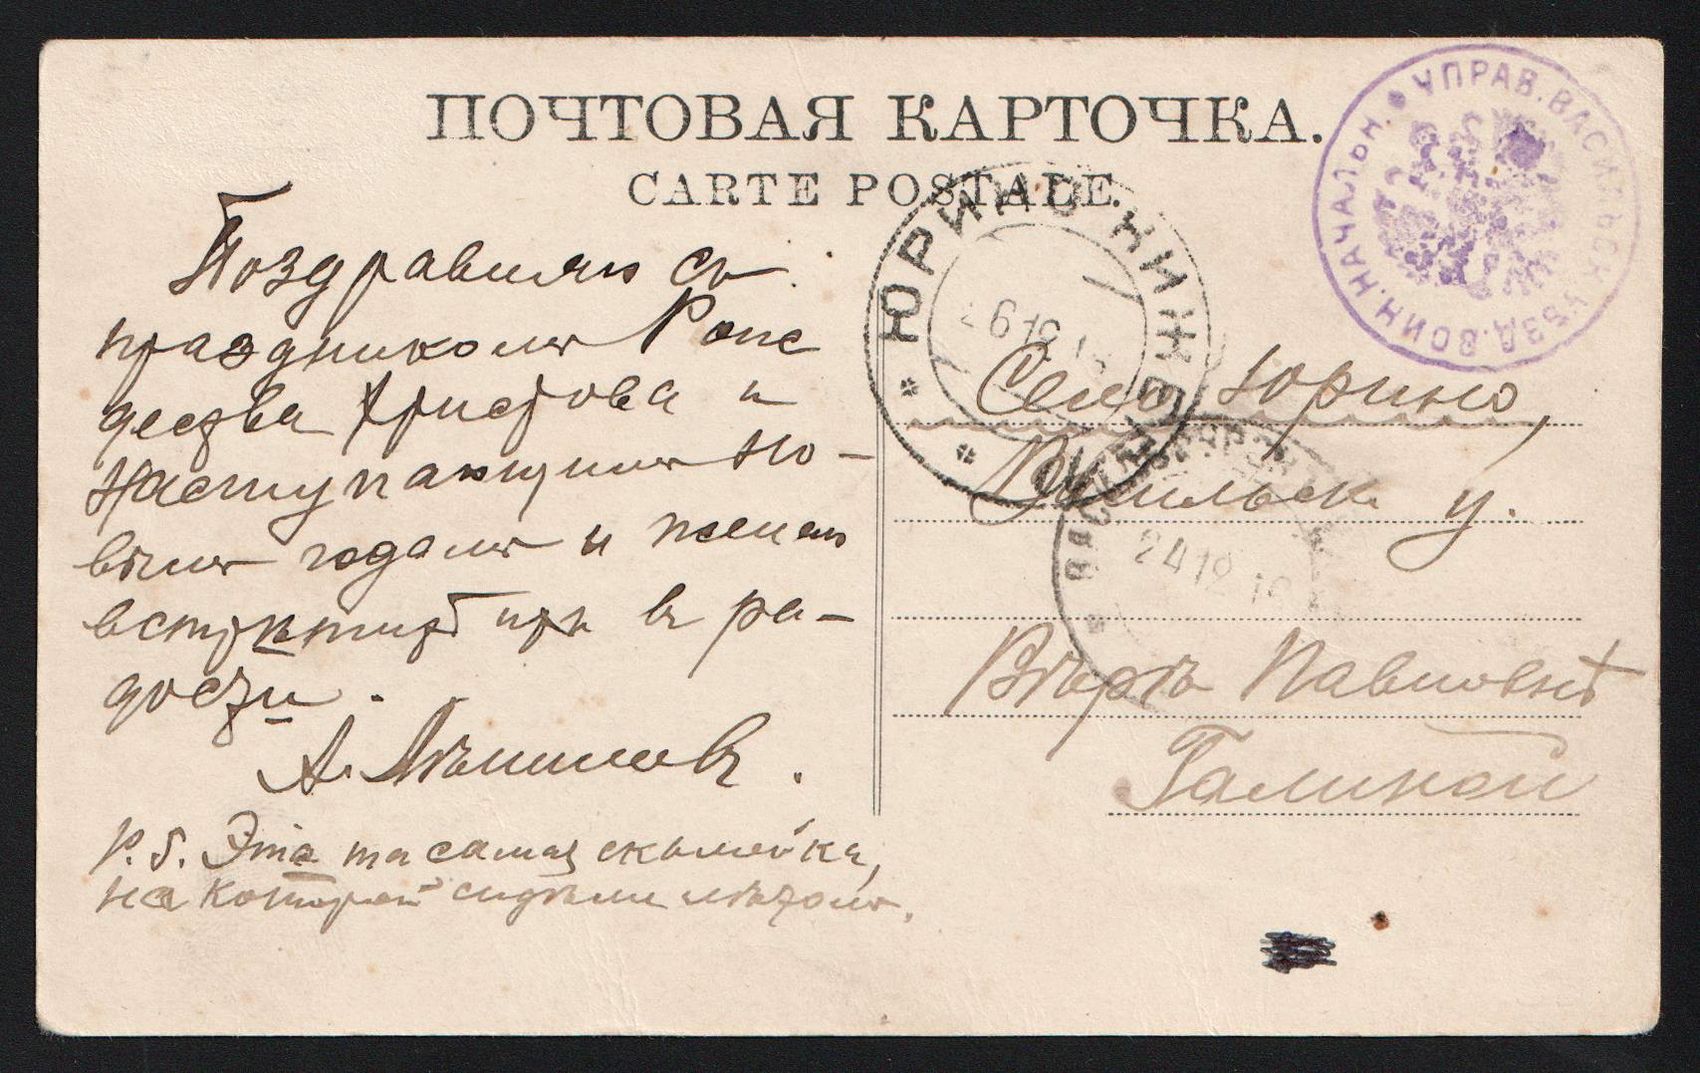 ПОЧТОВАЯ КАРТОЧКА.
CARTE POSTALE.
УПРАВ. ВАСИЛЬСК. УѢЗД. ВОИН. НАЧАЛЬН.
ЮРИНО НИЖЕГ.
24 12
Поздравляю съ
праздникомъ Рож
дества Христова и
Наступающимъ Но-
вымъ годомъ и желаю
встрѣтить ихъ въ ра-
дости.
А.
P.S. Эта та самая скамейка,
на которой сидѣли лѣтомъ.
Село Юрино,
Васильск. у.
Вѣрѣ Павловнѣ
Галиной